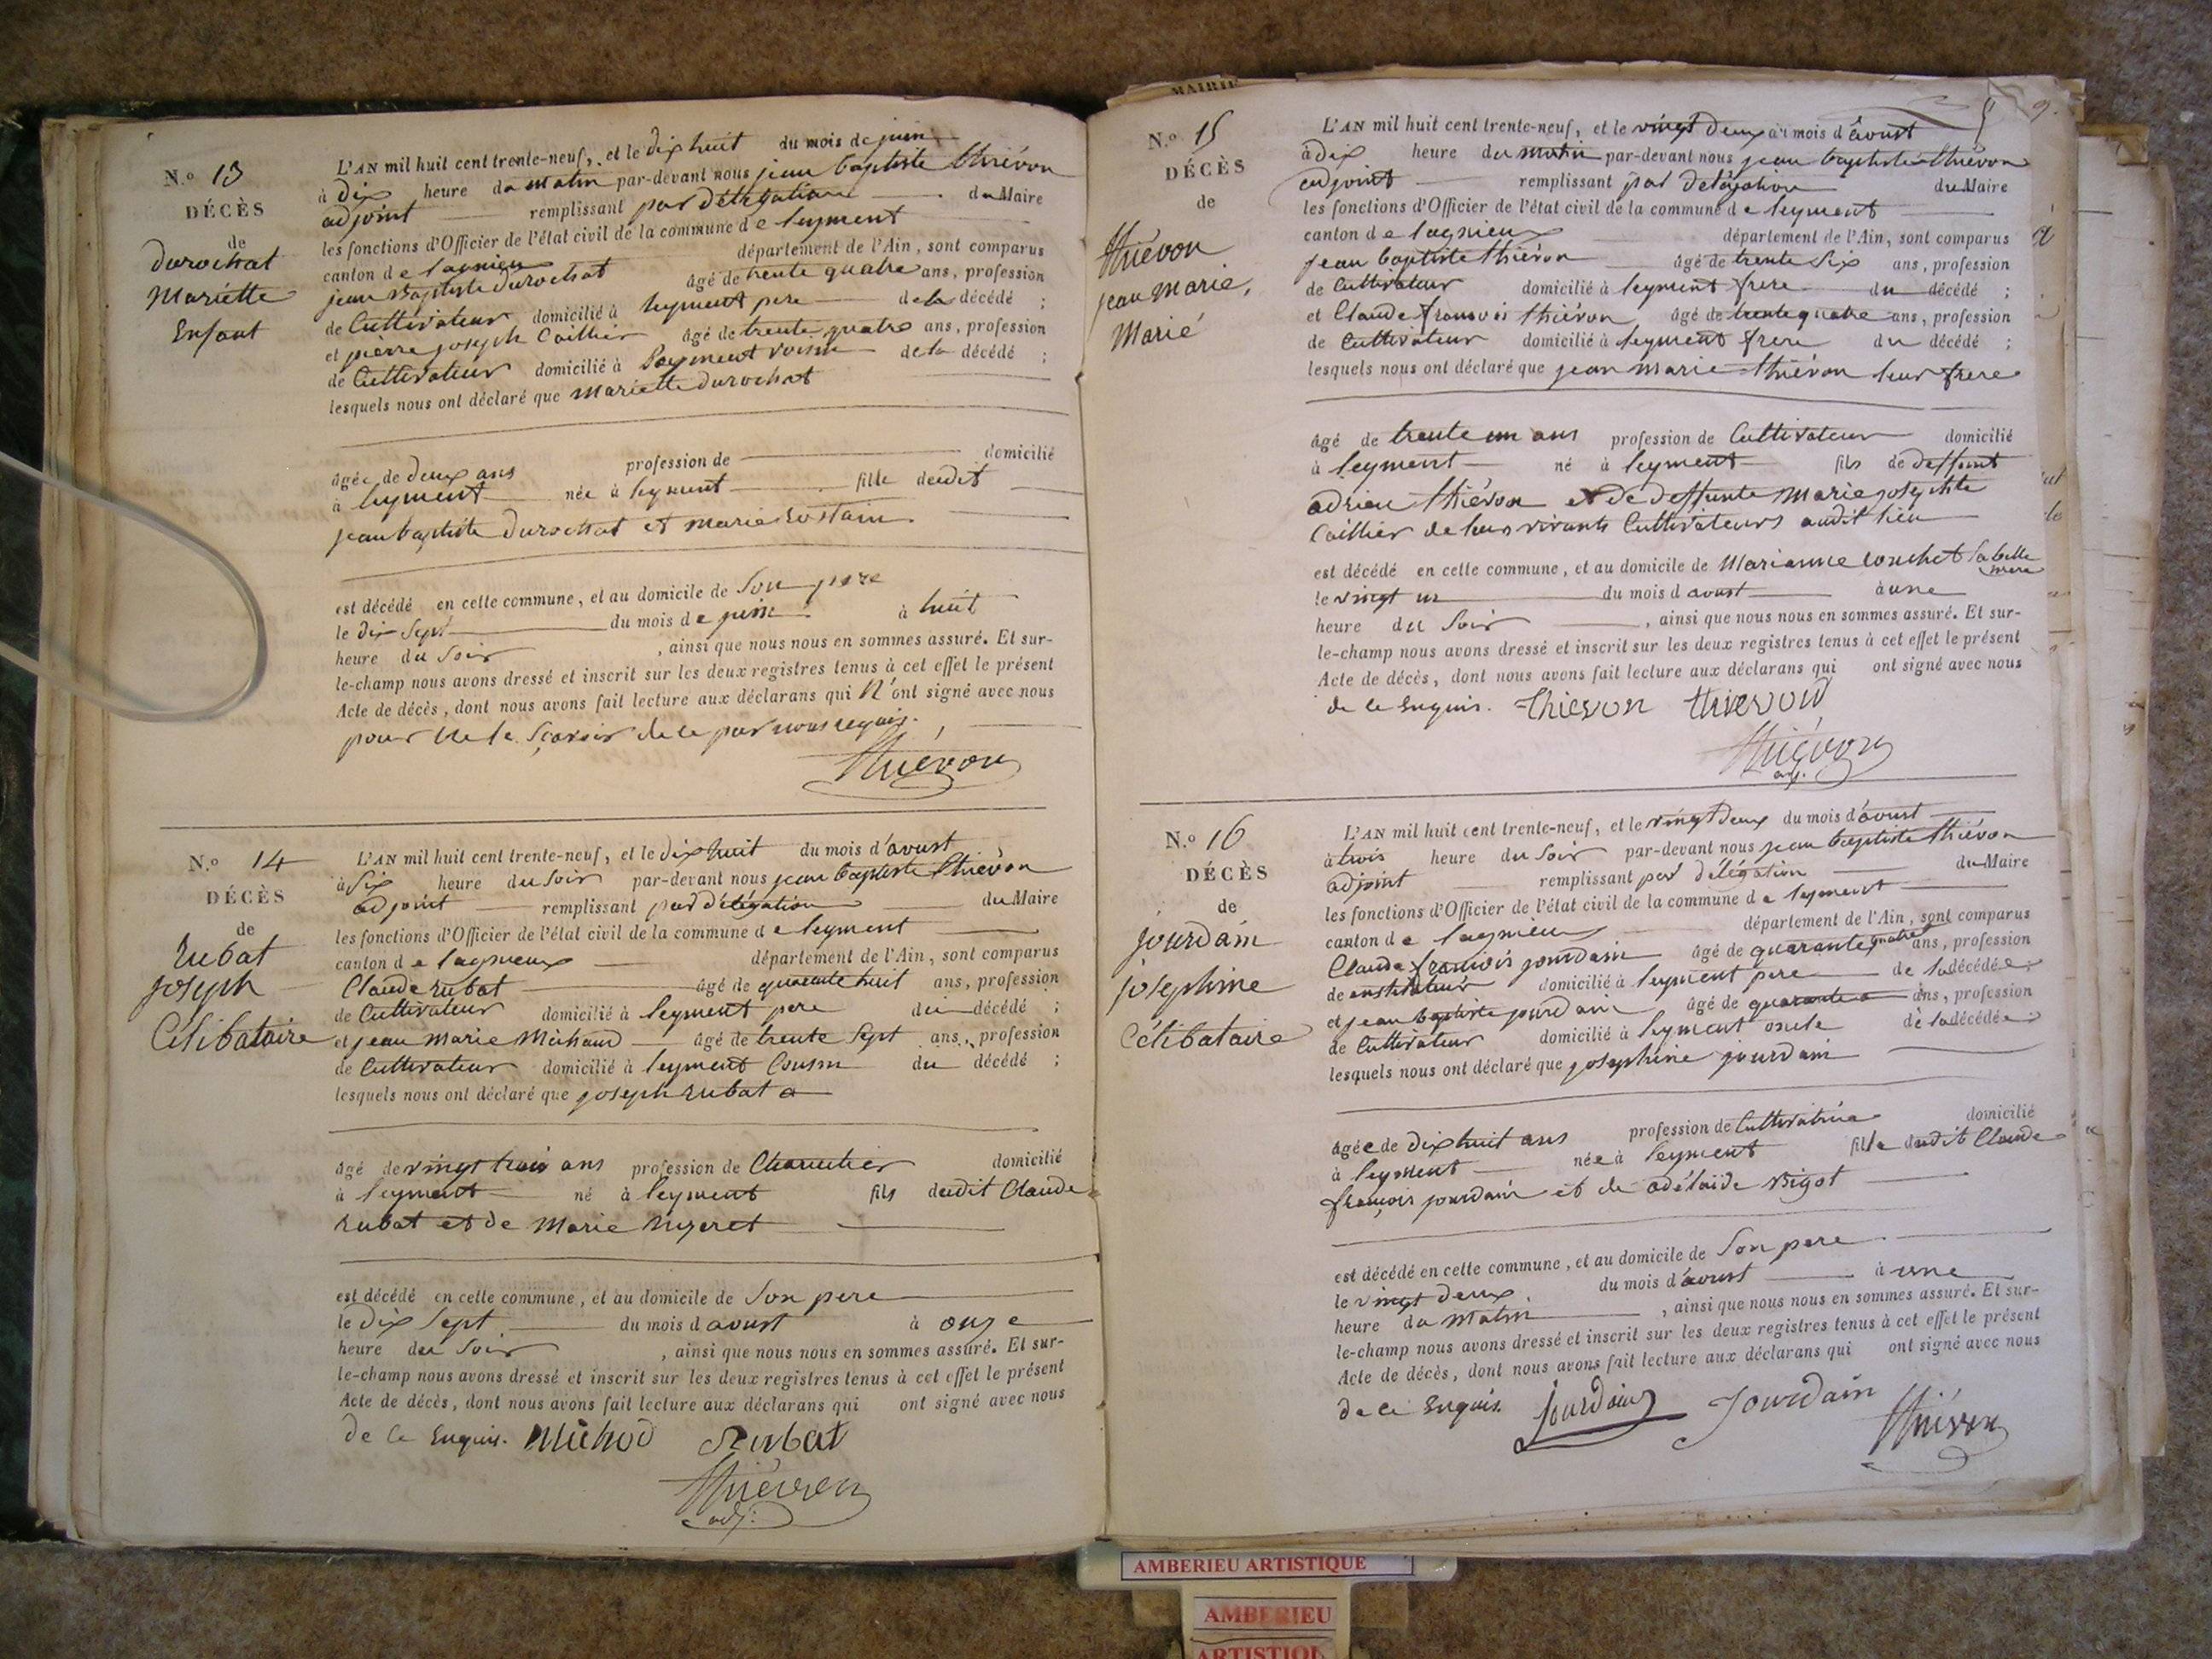 N.o 13
DÉCÈS
de
Durochat
Mariette
Enfant
L'AN mil huit cent trente-neuf, et le dix huit du mois de juin
à dix heure du matin par-devant nous jean baptiste thiévon
adjoint remplissant par délégation du Maire
les fonctions d'Officier de l'état civil de la commune de leyment
canton de lagnieu département de l'Ain, sont comparus
jean Baptiste Durochat âgé de trente quatre ans, profession
de Cultivateur domicilié à leyment pere de la décédé ;
et pierre joseph Caillier âgé de trente quatre ans, profession
de Cultivateur domicilié à Leyment voisin de la décédé ;
lesquels nous ont déclaré que mariette Durochat
âgée de deux ans profession de domicilié
à leyment née à leyment fille dudit
jean baptiste Durochat et marie
est décédé en cette commune, et au domicile de Son pere
le dix Sept du mois de juin à huit
heure du Soir , ainsi que nous nous en sommes assuré. Et sur-
le-champ nous avons dressé et inscrit sur les deux registres tenus à cet effet le présent
Acte de décès, dont nous avons fait lecture aux déclarans qui N'ont signé avec nous
pour ne le Sçavoir de ce par nous requis.
Thiévon
N.o 14
DÉCÈS
de
Rubat
joseph
Célibataire
L'AN mil huit cent trente-neuf, et le dix huit du mois d'avoust
à Six heure du Soir par-devant nous jean baptiste thiévon
adjoint remplissant par délégation du Maire
les fonctions d'Officier de l'état civil de la commune de leyment
canton de lagnieux département de l'Ain, sont comparus
Claude Rubat âgé de quarante huit ans, profession
de Cultivateur domicilié à leyment pere du décédé ;
et jean marie Michaud âgé de trente Sept ans, profession
de Cultivateur domicilié à leyment Cousin du décédé ;
lesquels nous ont déclaré que joseph Rubat
âgé de vingt trois ans profession de domicilié
à leyment né à leyment fils dudit Claude
Rubat et de Marie
est décédé en cette commune, et au domicile de Son pere
le Dix Sept du mois d avoust à onze
heure du Soir , ainsi que nous nous en sommes assuré. Et sur-
le-champ nous avons dressé et inscrit sur les deux registres tenus à cet effet le présent
Acte de décès, dont nous avons fait lecture aux déclarans qui ont signé avec nous
de ce Enquis. Michod Rubat
Thiévon
adj.
9.
N.o 15
DÉCÈS
de
Thiévon
jean marie,
Marié
L'AN mil huit cent trente-neuf, et le vingt deux du mois d'avoust
à dix heure du matin par-devant nous jean baptiste thiévon
adjoint remplissant par délégation du Maire
les fonctions d'Officier de l'état civil de la commune de leyment
canton de lagnieux département de l'Ain, sont comparus
jean baptiste thiévon âgé de trente Six ans, profession
de Cultivateur domicilié à leyment frere du décédé ;
et Claude françois thiévon âgé de trente quatre ans, profession
de Cultivateur domicilié à leyment frere du décédé ;
lesquels nous ont déclaré que jean marie thiévon leur frere
âgé de trente un ans profession de Cultivateur domicilié
à leyment né à leyment fils de deffunt
adrien thiévon et de deffunte marie josephte
Caillier de leurs vivants Cultivateurs audit lieu
est décédé en cette commune, et au domicile de Marianne Couchet Sa belle
mere
le vingt un du mois d avoust à une
heure du Soir , ainsi que nous nous en sommes assuré. Et sur-
le-champ nous avons dressé et inscrit sur les deux registres tenus à cet effet le présent
Acte de décès, dont nous avons fait lecture aux déclarans qui ont signé avec nous
de ce Enquis. Thievon thievon
Thiévon
adj.
N.o 16
DÉCÈS
de
jourdain
josephine
Célibataire
L'AN mil huit cent trente-neuf, et le vingt Deux du mois d'avoust
à trois heure du Soir par-devant nous jean baptiste thiévon
adjoint remplissant par délégation du Maire
les fonctions d'Officier de l'état civil de la commune de leyment
canton de lagnieux département de l'Ain, sont comparus
Claude françois jourdain âgé de quarante quatre ans, profession
de instituteur domicilié à leyment pere de la décédée ;
et jean baptiste jourdain âgé de quarante ans, profession
de Cultivateur domicilié à leyment oncle de la décédée ;
lesquels nous ont déclaré que josephine jourdain
âgée de dix huit ans profession de Cultivatrice domicilié
à leyment née à leyment fille dudit Claude
françois jourdain et de adélaïde Bigot
est décédé en cette commune, et au domicile de Son pere
le vingt deux du mois d'avoust à une
heure du matin , ainsi que nous nous en sommes assuré. Et sur-
le-champ nous avons dressé et inscrit sur les deux registres tenus à cet effet le présent
Acte de décès, dont nous avons fait lecture aux déclarans qui ont signé avec nous
de ce Enquis. jourdain Jourdain
Thiévon
MAIRIE
AMBERIEU ARTISTIQUE
AMBERIEU
ARTISTIQ